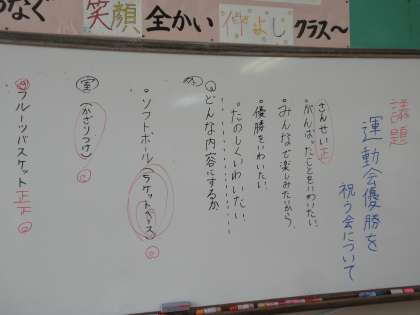 なぐ 笑顔 全かい 仲よし クラス〜
議題
運動会優勝を
祝う会について
さんせい正
・がんばったことをいわいたい。
・みんなで楽しみたいから。
・優勝をいわいたい。
・たのしくいわいたい。
どんな内容にするか。
・ソフトボール(ラケットベース)
室(かざりつけ)
フルーツバスケット 正下